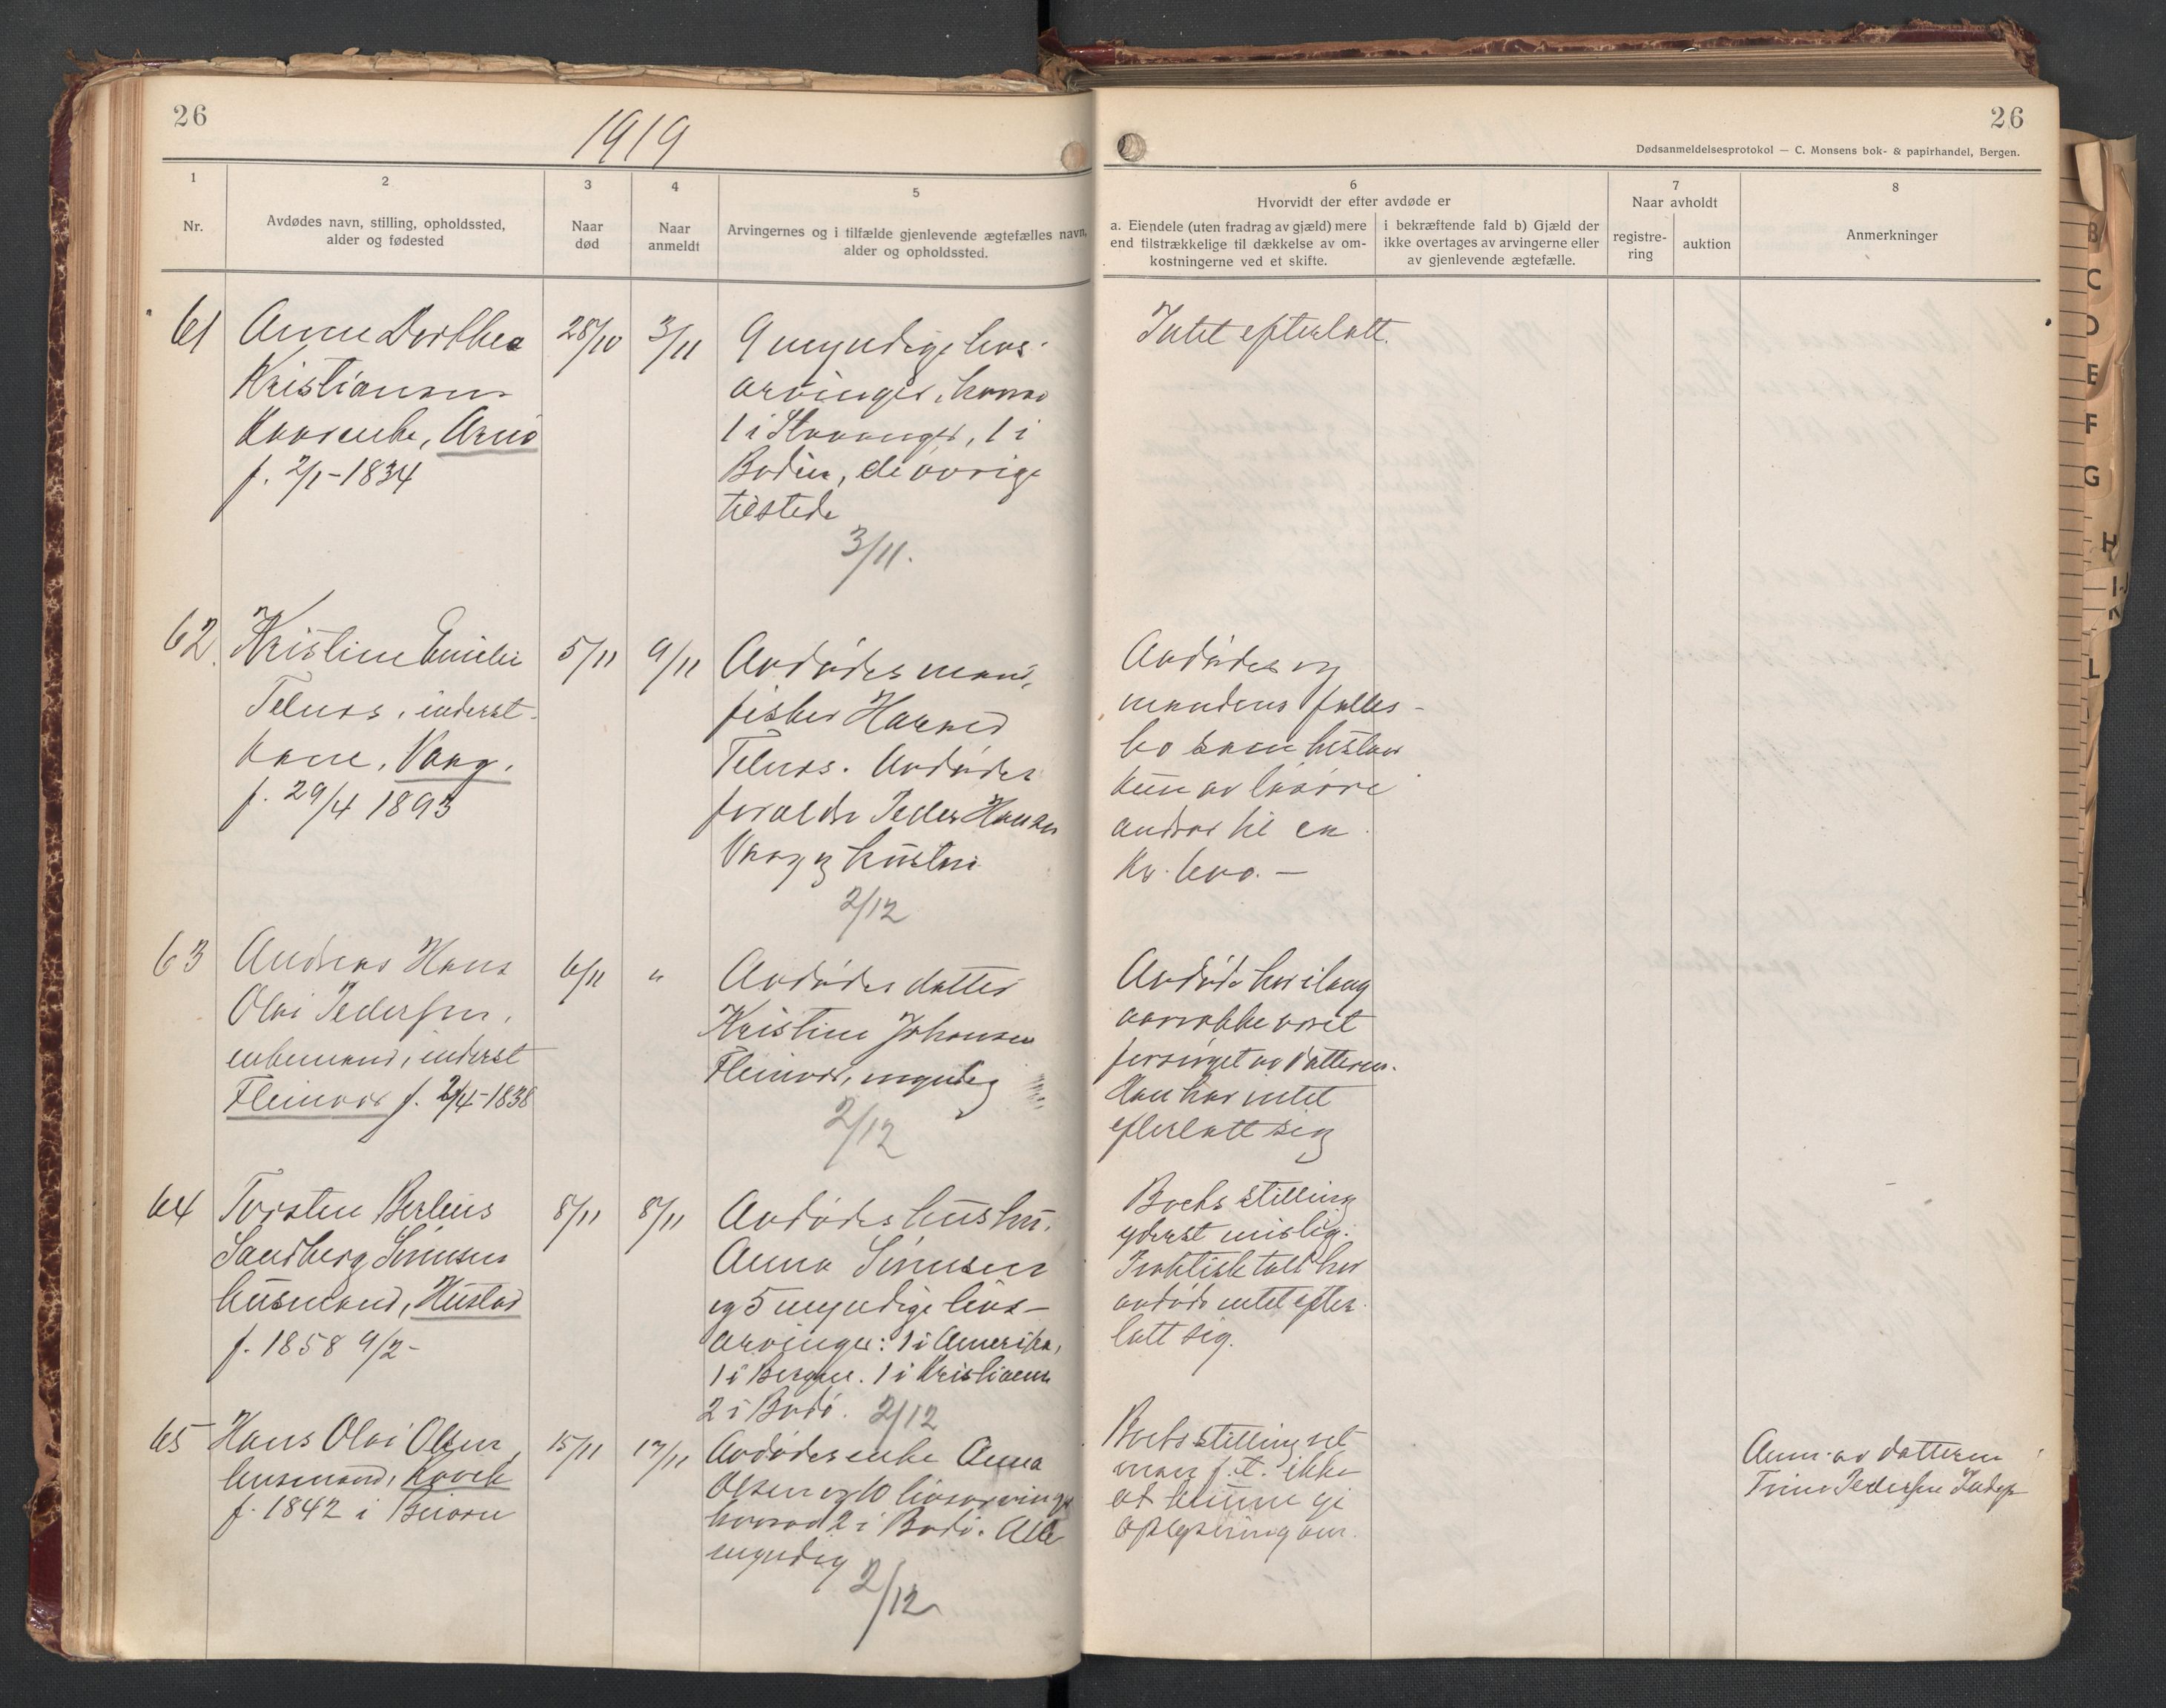 26
1919
26
Dødsanmeldelsesprotokol — C. Monsens bok- & papirhandel, Bergen.
1
Nr.
2
Avdødes navn, stilling, opholdssted,
alder og fødested
3
Naar
død
4
Naar
anmeldt
5
Arvingernes og i tilfælde gjenlevende ægtefælles navn,
alder og opholdssted.
6
Hvorvidt der efter avdøde er
a. Eiendele (uten fradrag av gjæld) mere
end tilstrækkelige til dækkelse av om-
kostningerne ved et skifte.
i bekræftende fald b) Gjæld der
ikke overtages av arvingerne eller
av gjenlevende ægtefælle.
7
Naar avholdt
registre-
ring
auktion
8
Anmerkninger
61
Anne Dorthea
Kristiansen
Kaarenke, Arnø
f. 2/1-1834
28/10
3/11
9 myndige livs-
arvinger, hvorav
1 i Stavanger, 1 i
Bodin, de øvrige
tilstede
3/11.
Intet efterlatt.
62.
Kristine Emilie
inderst-
kone, Vaag.
f. 29/4 1893
5/11
9/11
Avdødes mand,
fisker Harald
Avdødes
forældre Peder Hansen
Vaag og hustru
2/12
Avdødes og
mandens fælles-
bo som bestaar
kun av løsøre
andrar til ca
Kr.
63
Andreas Hans
Olai Pedersen,
enkemand, inderst
Fleinvær f. 2/4-1838
6/11
"
Avdødes datter
Kristine Johansen
Fleinvær, myndig
2/12
Avdøde har i lang
aarrække været
forsørget av datteren.
Han har intet
efterlatt sig
64
Torsten Berleus
Sandberg Simonsen
husmand, Hustad
f. 1858 9/2-
8/11
8/11
Avdødes hustru,
Anna Simonsen
og 5 myndige livs-
arvinger: 1 i Amerika,
1 i Bergen. 1 i Kristiania
2 i Bodø. 2/12
Boets stilling
yderst mislig.
Praktisk talt har
avdøde intet efter-
latt sig.
65
Hans Olai Olsen,
husmand,
f. 1842 i Beiarn
15/11
17/11
Avdødes enke Anna
Olsen og 10 livsarvinger
hvorav 2 i Bodø. Alle
myndig
2/12
Boets stilling vet
man f. t. ikke
at kunne gi
oplysning om.
Anm. av datteren
Trine Pedersen
B
C
D
E
F
G
H
L